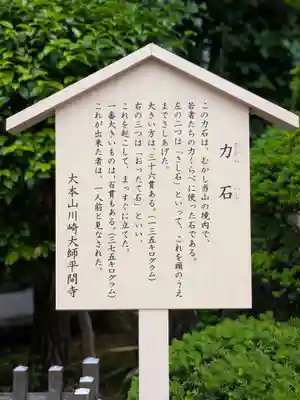 力石
この力石は、むかし当山の境内で、
若者たちの力くらべに使った石である。
左の二つは「さし石」といって、これを頭のうえ
までさしあげた。
大きい方は、三十六貫ある。(一三五キログラム)
右の三つは「おったて石」といい、
これを起こして、まっすぐに立てた。
一番大きいものは、百貫もある。(三七五キログラム)
これが出来た者は、一人前と見なされた。
大本山川崎大師平間寺